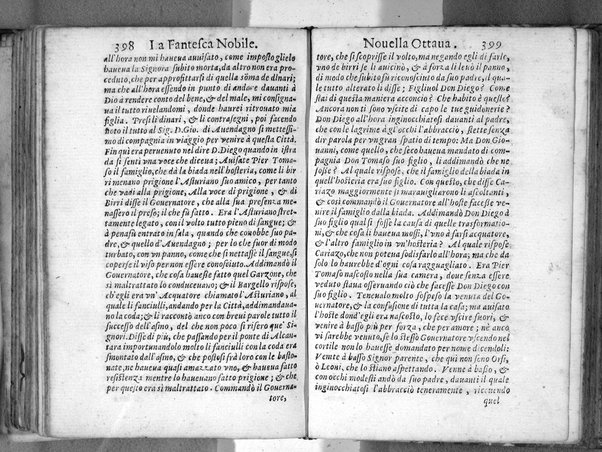 398 La Fantesca Nobile.
all'hora non mi haueua auuisato, come impostogli elo
haueua la Signora subito morta, da altro non era pro-
ceduto, che per approfittarsi di quella sõma de dinari;
ma che all'hora essendo in punto di andare dauanti à
Dio à rendere conto del bene, & del male, mi consigna-
ua il tutto riuelandomi, donde haurei ritrouato mia
figlia. Presi li dinari, & li contrasegni, poi facendo
noto il tutto al Sig. D. Gio. di Auendagno si mettessi-
mo di compagnia in viaggio per venire à questa Città.
Fin quì era peruenuto nel dire D. Diego quando in istra
da si sentì vna voce che diceua; Auisate Pier Toma-
so il famiglio, che dà la biada nell'hosteria, come li bir
ri menano prigione l'Asturiano suo amico, per tanto
che vadi alla prigione, Alla voce di prigione, & di
Birri disse il Gouernatore, che alla sua presenza me-
nassero il preso; il che fù fatto. Era l'Asturiano stret-
tamente legato, con il volto tutto pieno di sangue; &
à pena entrato in sala, quando che conobbe suo pa-
dre, & quello d'Auendagno; per lo che fuor di modo
turbato, con vn panno, come che si nettasse il sangue si
coperse il viso per non essere conosciuto. Addimandò il
Gouernatore, che cosa hauesse fatto quel Garzone, che
sì maltrattato lo conduceuano; & il Bargello rispose,
ch'egli era vn' Acquatore chiamato l'Asturiano, al
quale li fanciulli, andando per la Città, addimandaua-
no la coda; & li raccontò anco con breui parole tutto il
successo dell'asino, del che non poco si risero que' Si-
gnori. Disse di più, che passando per il ponte di Alcan-
tara importunandolo molto li fanciulli con la coda era
smontato dall'asino, & che postosi frà loro con le basto-
nate, ne haueua quasi amazzato vno, & haueua fatto
resistenza mentre lo haueuano fatto prigione; & che
per questo era sì maltrattato. Commandò il Gouerna-
tore,
Nouella Ottaua. 399
tore, che si scoprisse il volto, ma negando egli di farlo,
vno de birri se li auicinò, & à forza li leuò il panno,
di modo che subito fù riconosciuto da suo padre, il qua-
le tutto alterato li disse; Figliuol Don Diego? Come
stai di questa maniera acconcio? Che habito è questo?
Ancora non ti sono vscite di capo le tue guidonerie?
Don Diego all'hora inginocchiatosi dauanti al padre,
che con le lagrime à gl'occhi l'abbracciò, stette senza
dir parola per vn gran spatio di tempo: Ma Don Gio-
uanni, come quello, che seco haueua mandato di com-
pagnia Don Tomaso suo figlio, li addimandò che ne
fosse? Al quale rispose, che il famiglio della biada in
quell'hosteria era suo figlio. Con questo, che disse Ca-
riazo maggiormente si marauigliarono li ascoltanti,
& così commandò il Gouernatore all'hoste facesse ve-
nire il famiglio dalla biada. Addimandò Don Diego à
suo figlio qual si fosse la causa di quelle trasformatio-
ni, & che cosa li haueua mossi, l'vno à farsi acquatore,
& l'altro famiglio in vn'hosteria? Al quale rispose
Cariazo, che non poteua sodisfarlo all'hora; ma che da
solo lo haurebbe d'ogni cosa ragguagliato. Era Pier
Tomaso nascosto nella sua camera, doue senza essere
veduto staua osseruando ciò che facesse Don Diego con
suo figlio. Teneualo molto sospeso la venuta del Go-
uernatore, & la confusione di tutta la casa; ma auisato
l'hoste dond'egli era nascosto, lo fece vscire fuori, &
venire à basso più per forza, che per amore; nè anco
vi sarebbe venuto, se lo stesso Gouernatore vscendo nel
cortile non lo hauesse domandato per nome dicendoli:
Venite à basso Signor parente, che quì non sono Orsi,
ò Leoni, che lo stiano aspettando. Venne à basso, &
con occhi modesti andò da suo padre, dauanti il quale
inginocchiatosi l'abbracciò teneramente, riceuendo
quel